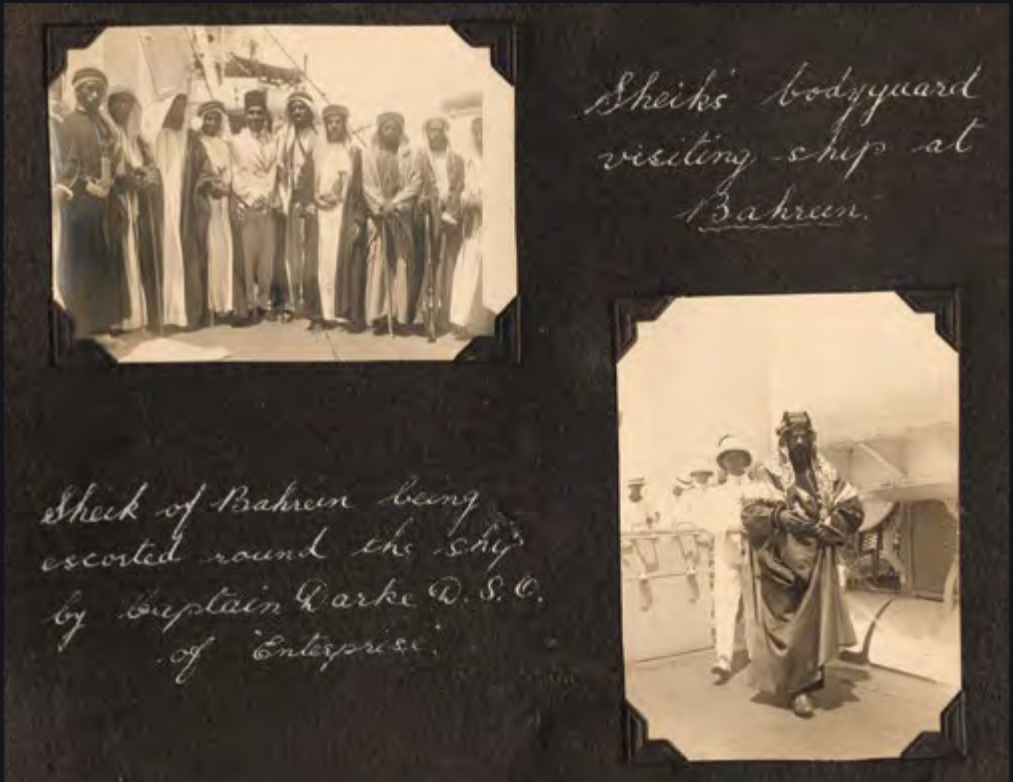 Sheik's bodyguard
visiting ship at
Bahrein.
Sheik of Bahrein being
escorted round the ship
by Captain Darke D.S.O.
of "Enterprise".